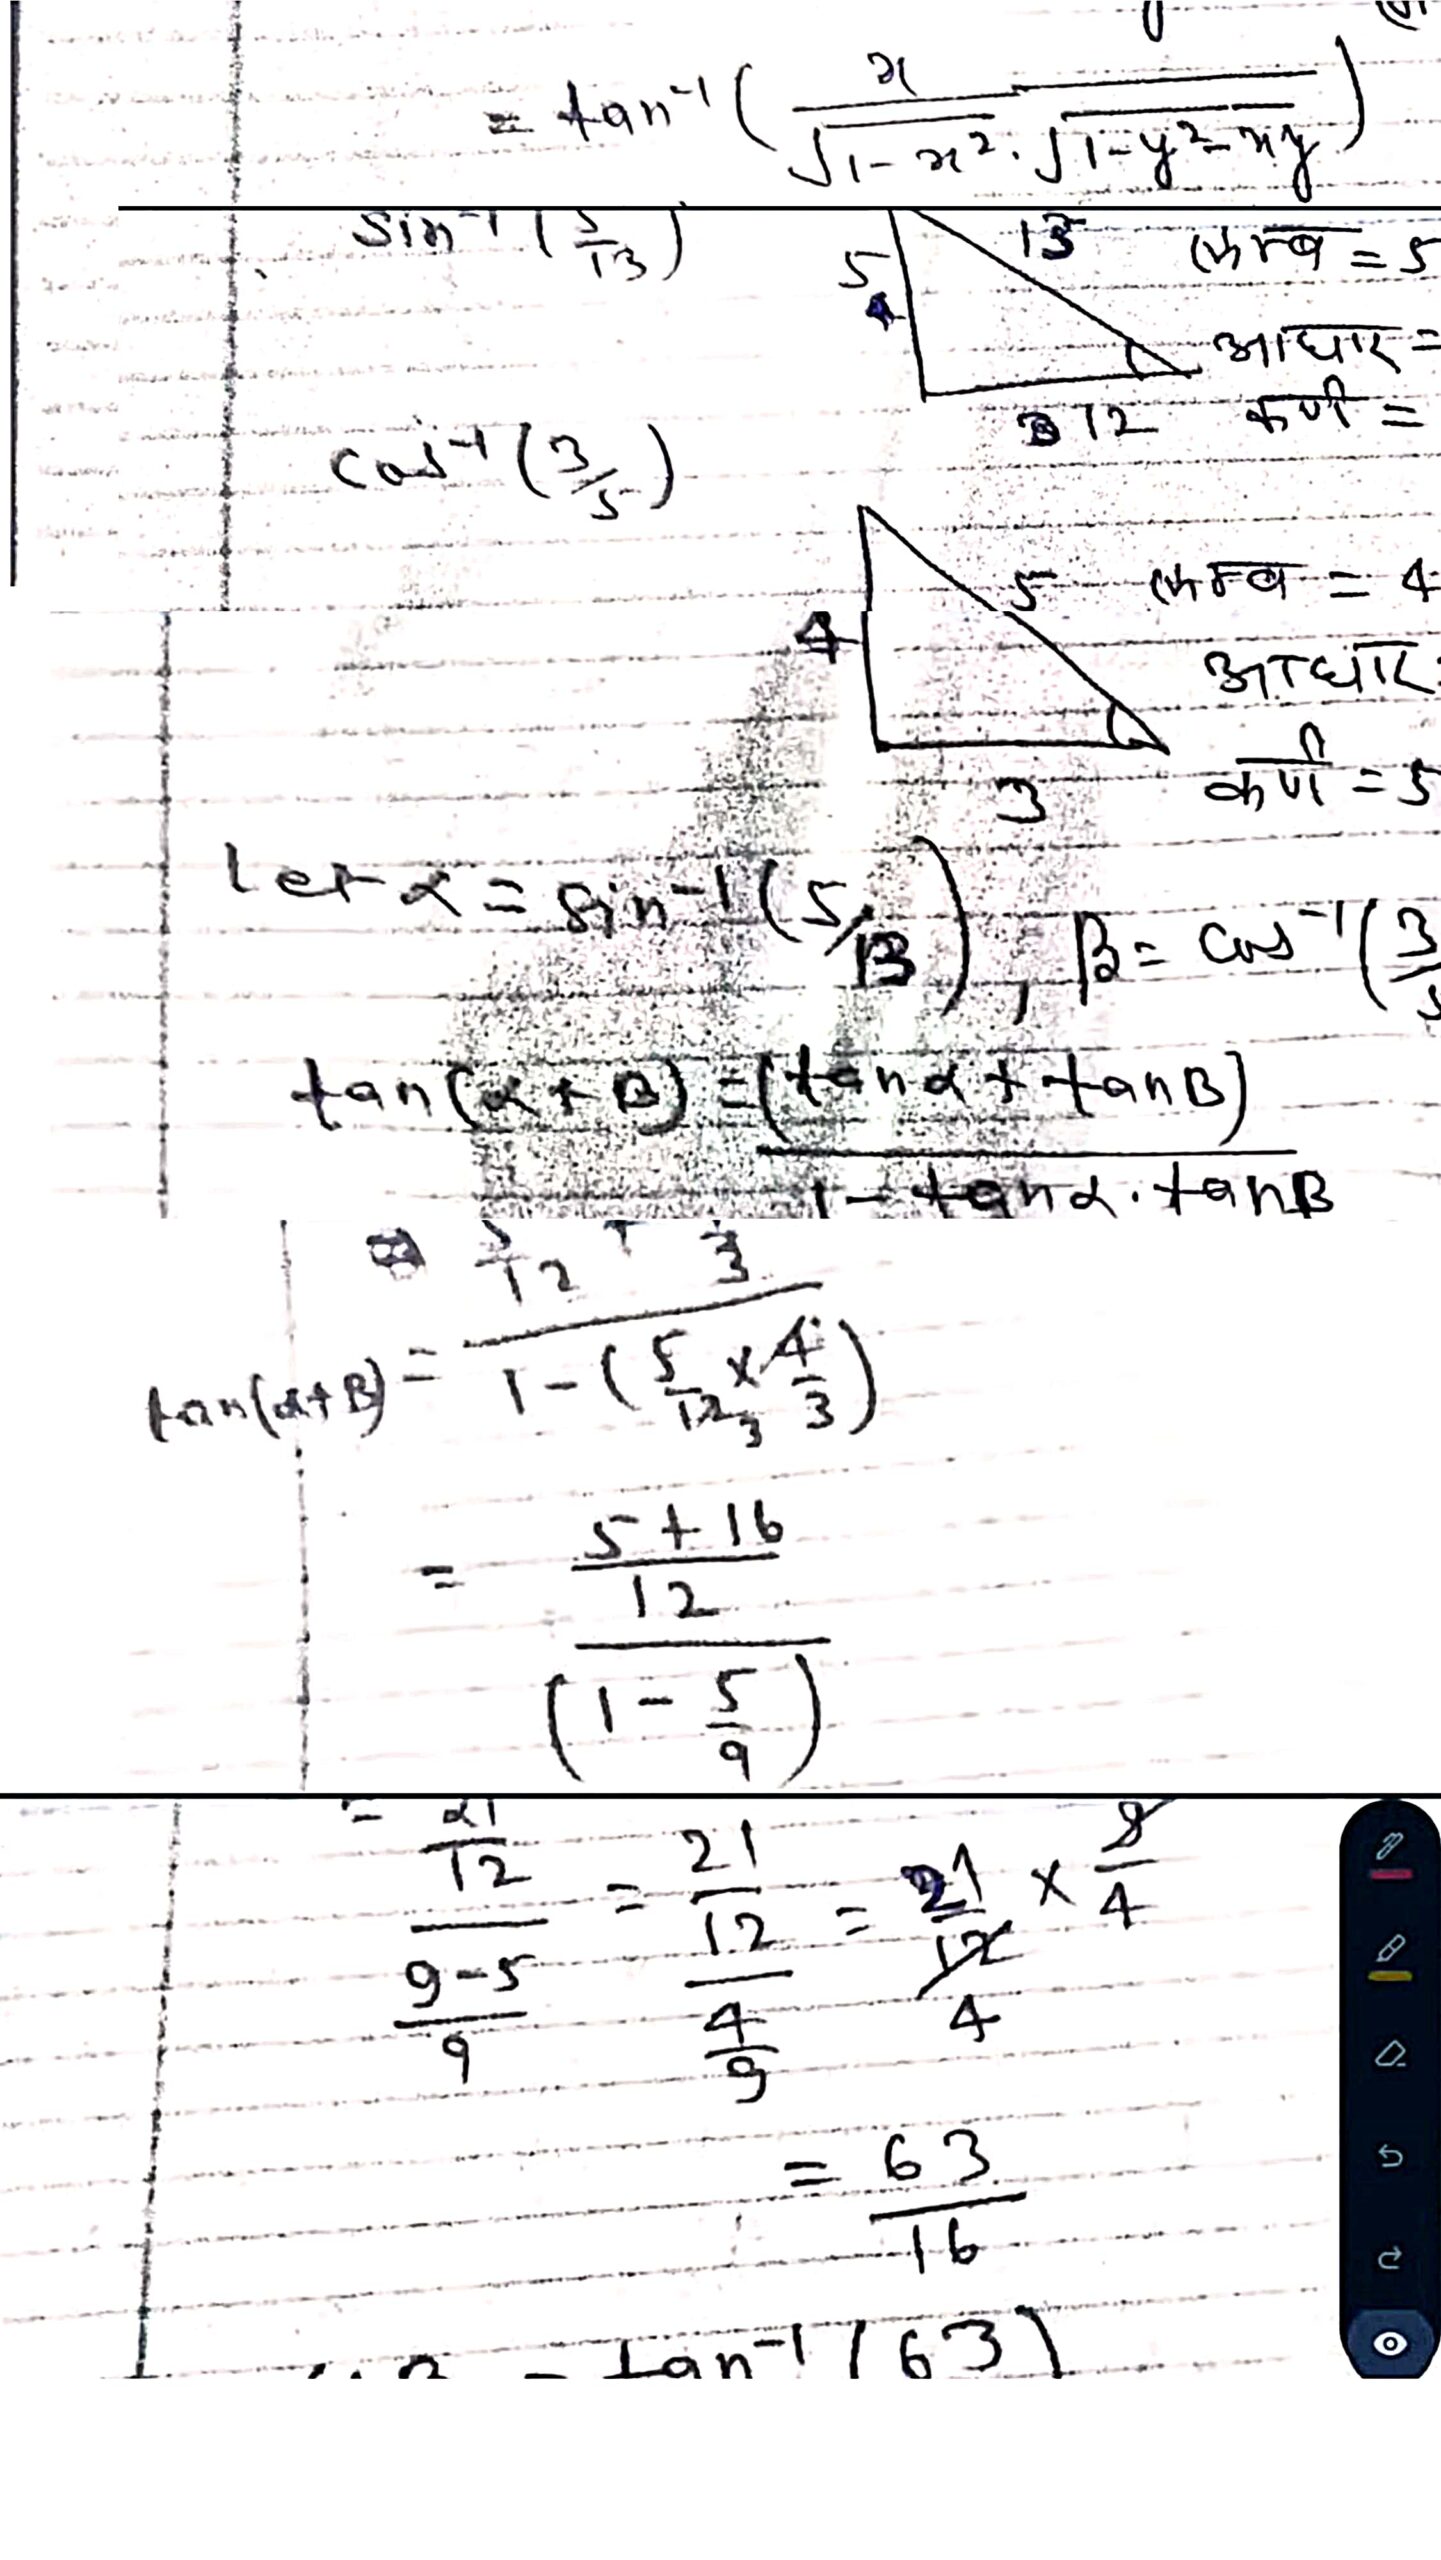 = tan⁻¹ ( x / √1-x² · √1-y²-xy )
sin⁻¹ ( 5/13 )
13
5
12
लम्ब = 5
आधार =
कर्ण =
cos⁻¹ (3/5)
5
4
3
लम्ब = 4
आधार =
कर्ण = 5
let α = sin⁻¹ (5/13), β = cos⁻¹ (3/5
tan(α+B) = (tanα + tanB)
1 - tanα · tanB
5/12 + 4/3
tan(α+B) = 1 - ( 5/12 3 × 4/3 )
= 5+16 / 12
( 1 - 5/9 )
= 21/12 / 9-5/9 = 21/12 / 4/9 = 21/12 4 × 9/4
= 63/16
= tan⁻¹ ( 63 )